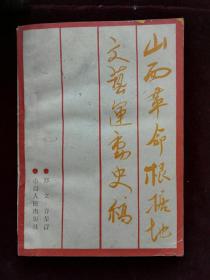 山西革命根据地
文藝運動史稿
山西人民出版社